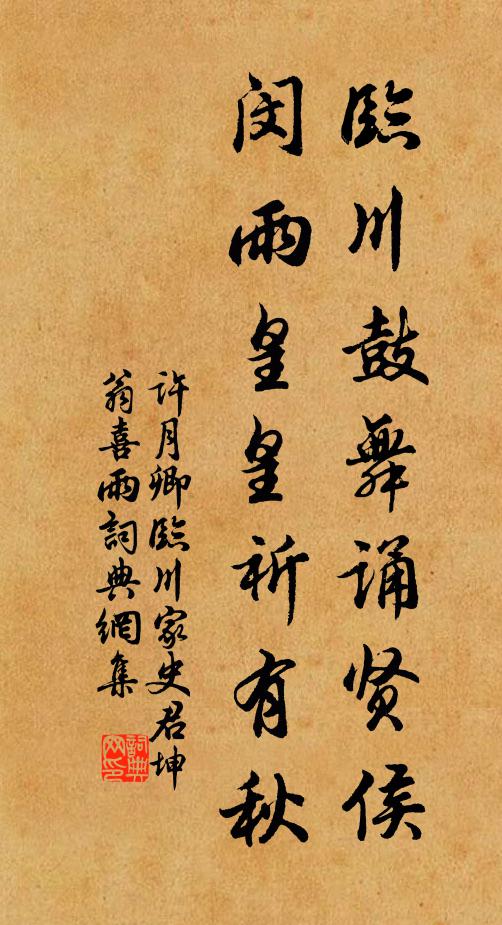 臨川鼓舞誦贤侯
闵雨皇皇祈有秋
許月卿臨川家史君坤
翁喜雨詞典網集
詞典网印